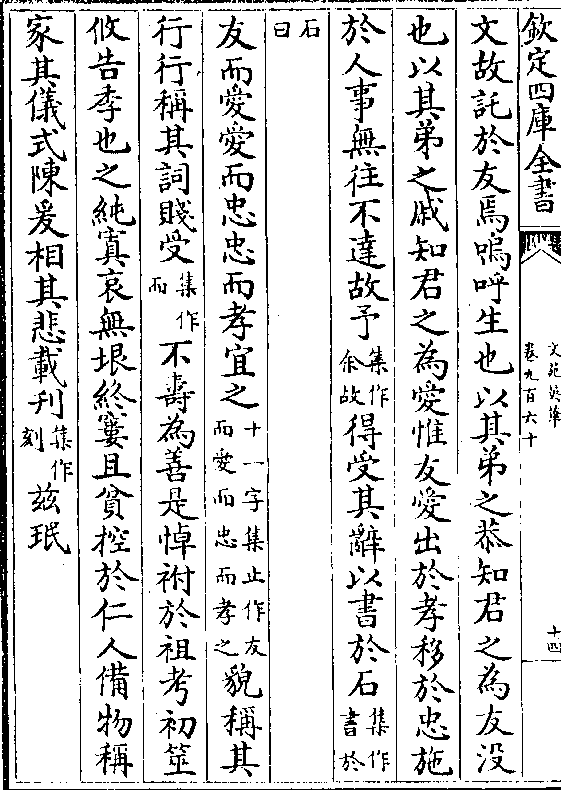 欽定四庫全書
文苑英華
卷九百六十
十四
文故託於友焉嗚呼生也以其弟之恭知君之為友没
也以其弟之戚知君之為愛惟友愛出於孝移於忠施
於人事無往不達故予集作余故得受其辭以書於石集作書於
石曰
友而愛愛而忠忠而孝宜之十一字集止作友而愛而忠而孝之貌稱其
行行稱其詞賤受集作而不壽為善是悼祔於祖考初筮
攸告季也之純寘哀無垠終窶且貧控於仁人備物稱
家其儀式陳爰相其悲載刊集作刻兹珉